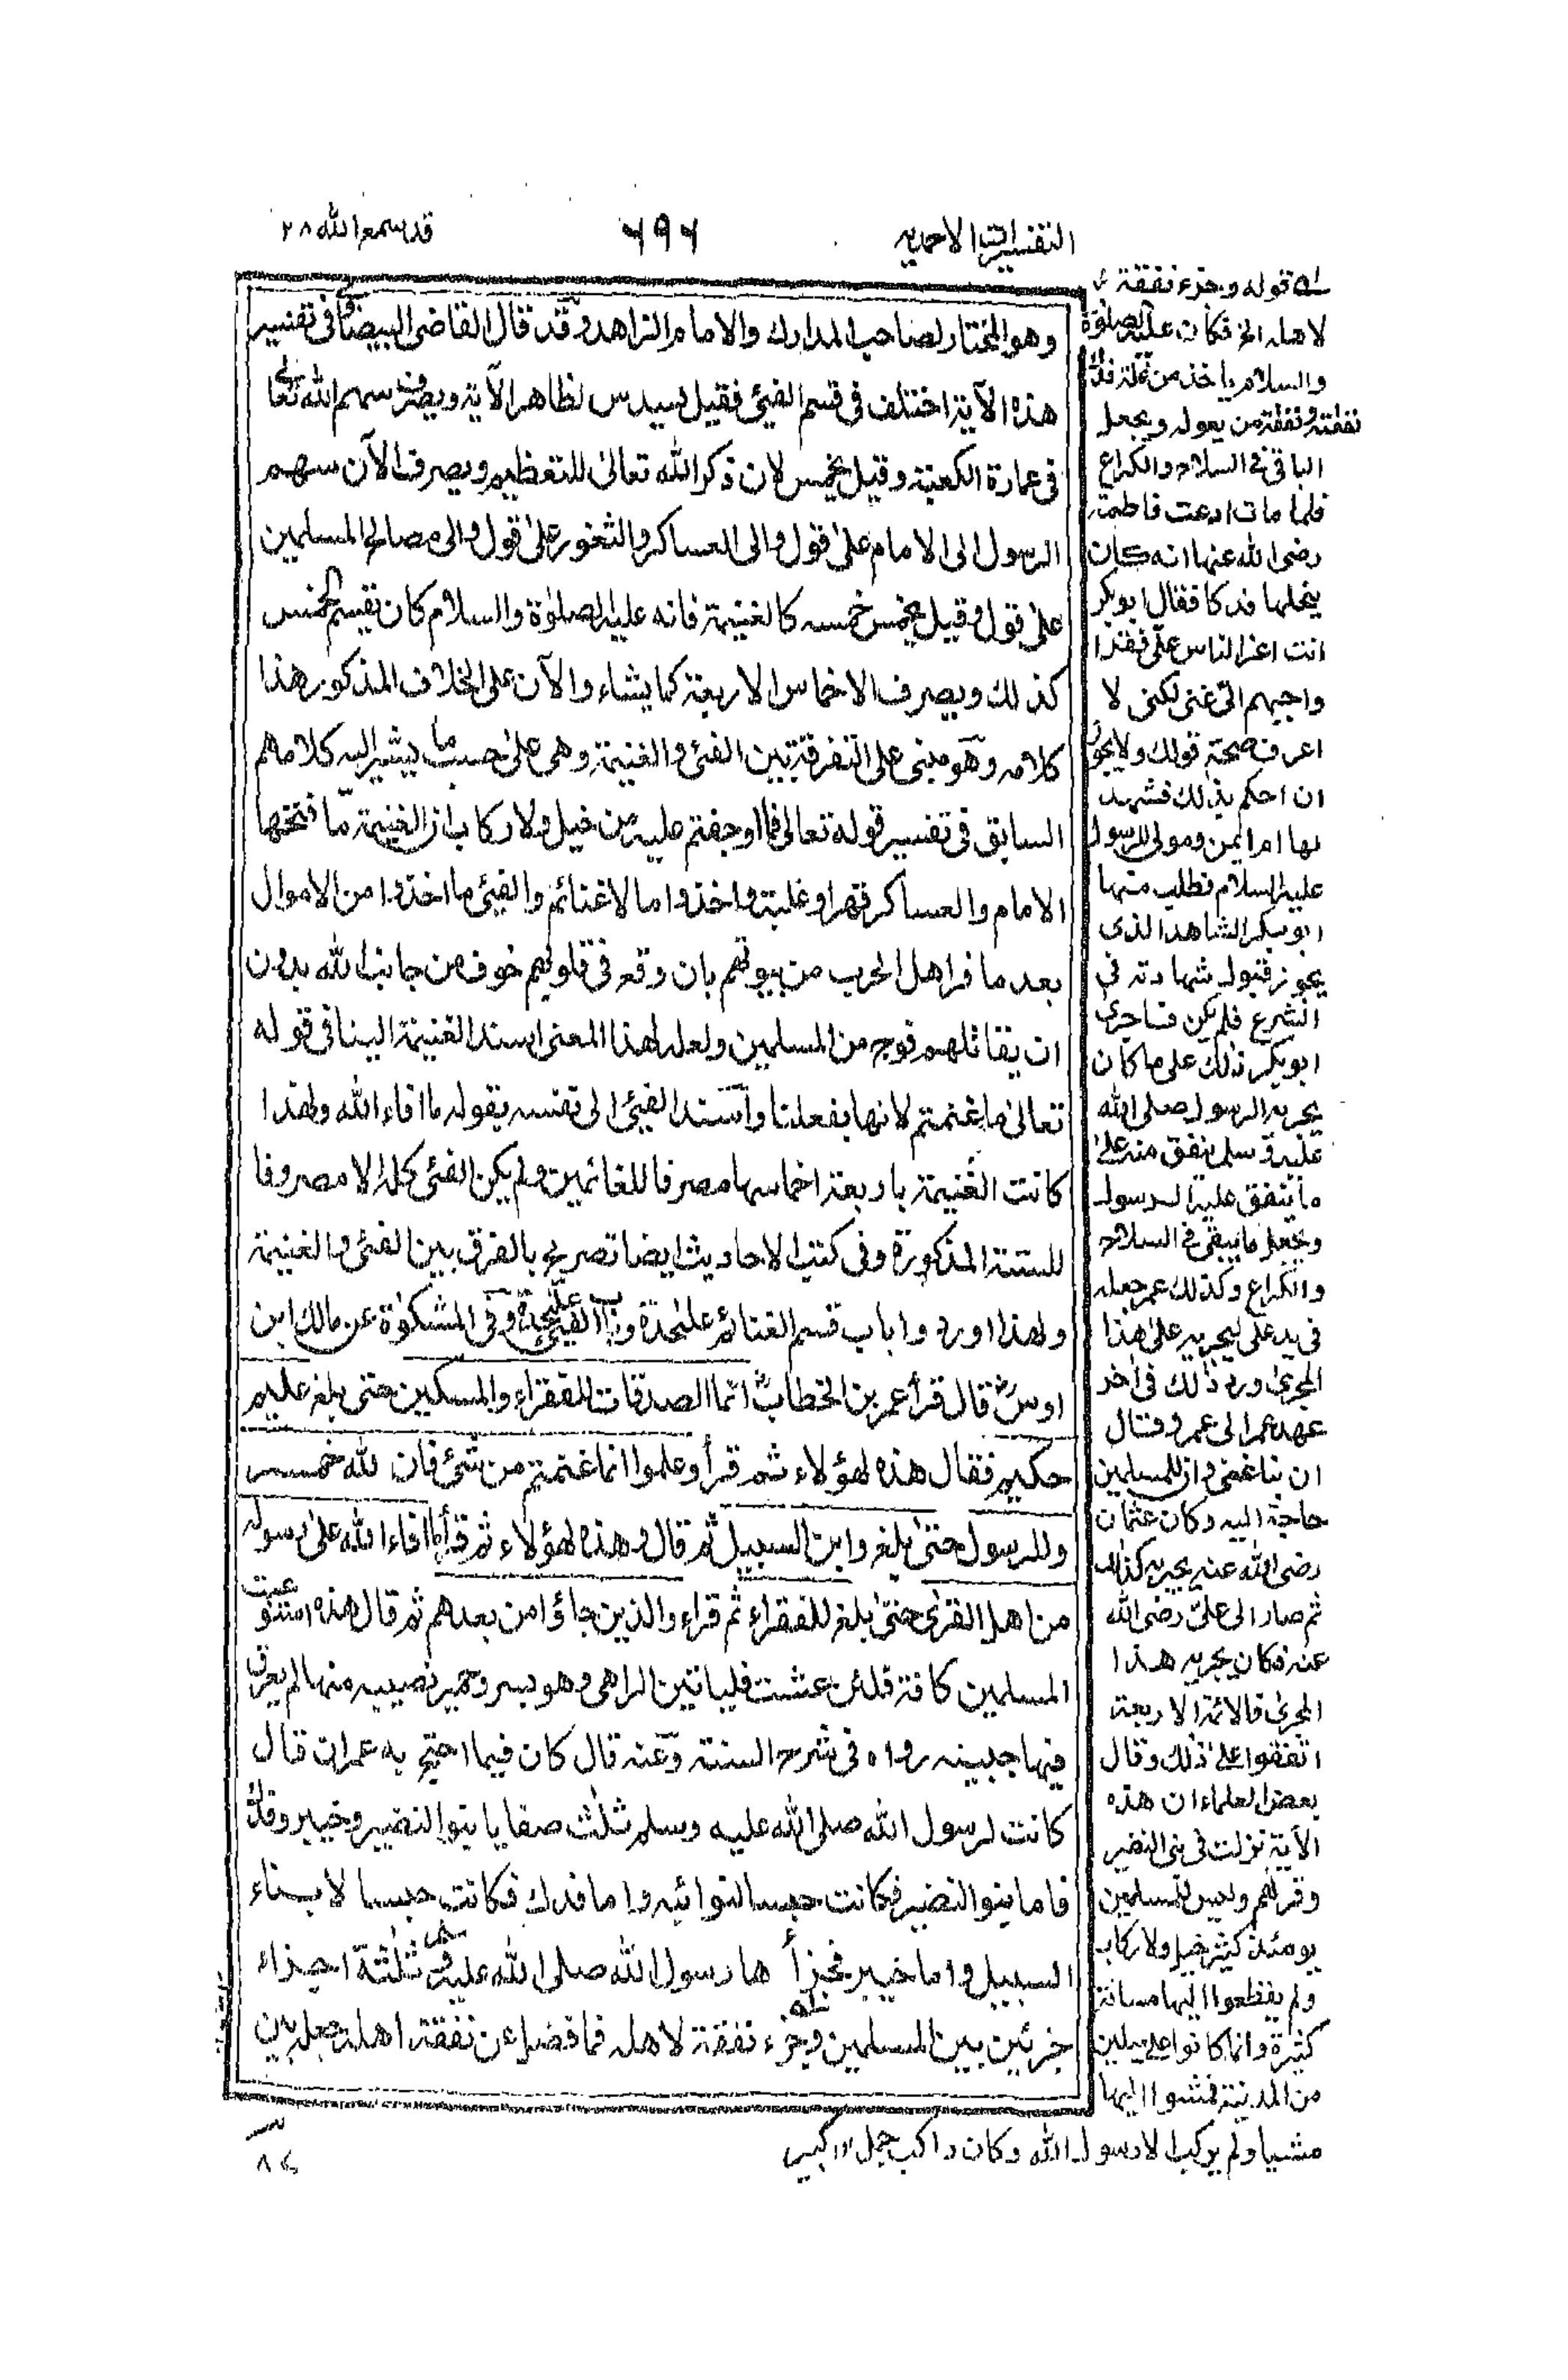 التفسيرات الاحمديه
٦٩٦
قد سمع الله ٢٨
وهو المختار لصاحب المدارك والامام الزاهد وقد قال القاضى البيضاوى فى تفسير
هذه الآية اختلف فى قسم الفيئ فقيل يسدس لظاهر الآية ويصرف سهم الله تعالى
فى عمارة الكعبة وقيل يخمس لان ذكر الله تعالى للتعظيم ويصرف الآن سهم
الرسول الى الامام على قول والى العساكر والثغور على قول والى مصالح المسلمين
على قول وقيل يخمس خمسه كالغنيمة فانه عليه الصلوٰة والسلام كان يقسم الخمس
كذلك ويصرف الاخماس الاربعة كما يشاء والآن على الخلاف المذكور هذا
كلامه وهو مبنى على التفرقة بين الفئى والغنيمة وهى على حسب ما يشير اليه كلامهم
السابق فى تفسير قوله تعالى فما اوجفتم عليه من خيل ولا ركاب ان الغنيمة ما فتحها
الامام والعساكر قهرا وغلبة واخذوا مالا غنائم والفيئ ما اخذوا من الاموال
بعد ما فر اهل الحرب من بيوتهم بان وقع فى قلوبهم خوف من جانب الله بدون
ان يقاتلهم فوج من المسلمين ولعله لهذا المعنى اسند الغنيمة الينا فى قوله
تعالى ما غنمتم لانها بفعلنا واسند الفيئ الى نفسه بقوله ما افاء الله ولهذا
كانت الغنيمة باربعة اخماسها مصرفا للغانمين ولم يكن الفئى كله الا مصروفا
للستة المذكورة وفى كتب الاحاديث ايضا تصريح بالفرق بين الفئى والغنيمة
ولهذا اوردوا باب قسم الغنائم علىٰحدة وباب الفيئ عليحدة وفى المشكوٰة عن مالك ابن
اوس قال قرأ عمر بن الخطاب انما الصدقات للفقراء والمسكين حتى بلغ عليم
حكيم فقال هذه لهؤلاء ثم قرأ وعلموا انما غنمتم من شئ فان لله خمسه
وللرسول حتى بلغ وابن السبيل ثم قال وهذه لهؤلاء ثم قرأ ما افاء الله على رسوله
من اهل القرى حتى بلغ للفقراء ثم قراء والذين جاؤا من بعدهم ثم قال هذه استوعبت
المسلمين كافة فلئن عشت فلياتين الراعى وهو بسرو حمير نصيبه منها لم يعرق
فيها جبينه رواه فى شرح السنة وعنه قال كان فيما احتج به عمر ان قال
كانت لرسول الله صلى الله عليه وسلم ثلٰث صفايا بنو النضير وخيبر وفدك
فاما بنو النضير فكانت حبسا لنوائبه واما فدك فكانت حبسا لابناء
السبيل واما خيبر فجزأ ها رسول الله صلى الله عليه وسلم ثلٰثة اجزاء
جزئين بين المسلمين وجزء نفقة لاهله فما فضل عن نفقة اهله جعله بين
له قوله وجزء نفقة
لاهله الخ فكان عليه الصلوٰة
والسلام ياخذ من غلة فدك
نفقته ونفقة من يعوله ويجعل
الباقى فى السلاح والكراع
فلما مات ادعت فاطمة
رضى الله عنها انه كان
ينحلها فدكا فقال ابوبكر
انت اعز الناس على فقرا
واحبهم الى غنى لكنى لا
اعرف صحة قولك ولا يجوز
ان احكم بذلك فشهد
لها ام ايمن ومولى للرسول
عليه السلام فطلب منها
ابوبكر الشاهد الذى
يجوز قبول شهادته فى
الشرع فلم يكن فاجرى
ابوبكر ذلك على ما كان
يجريه الرسول صلى الله
عليه وسلم ينفق منه على
ما ينفق عليه الرسول
ويجعل ما يبقى فى السلاح
والكراع وكذلك عمر جعله
فى يد على ليجريه على هذا
المجرى ورد ذلك فى آخر
عهد عمر الى عمر وقال
ان بنا غنى وان للمسلمين
حاجة اليه وكان عثمان
رضى الله عنه يجريه كذلك
ثم صار الى على رضى الله
عنه فكان يجريه هذا
المجرى فالائمة الاربعة
اتفقوا على ذلك وقال
بعض العلماء ان هذه
الآية نزلت فى بنى النضير
وقراهم وليس للمسلمين
يومئذ كثير خيل ولا ركاب
ولم يقطعوا اليها مسافة
كثيرة وانما كانوا على ميلين
من المدينة فمشوا اليها
مشيا ولم يركب الا رسول الله وكان راكب جمل ١٢ كبير